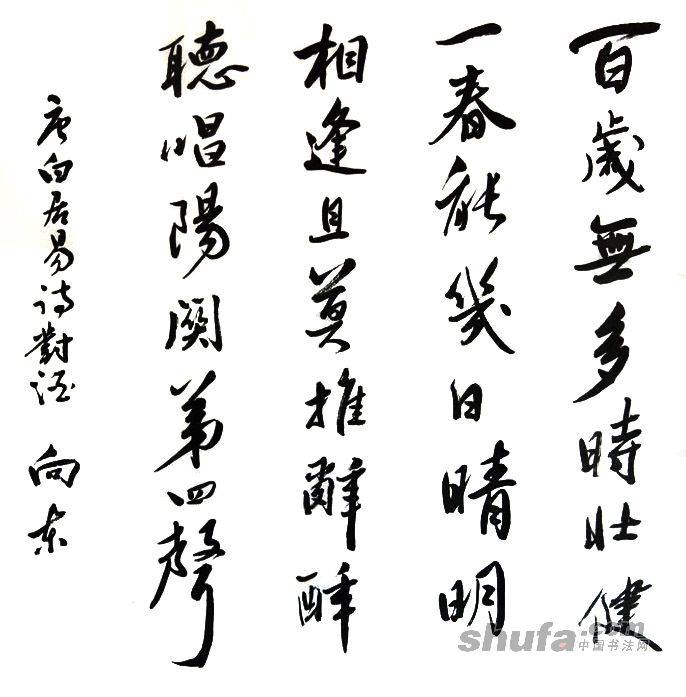 百歲無多時壯健
一春能幾日晴明
相逢且莫推辭醉
聽唱陽関第四聲
唐白居易詩對酒 向東
shufa.com
中国书法网